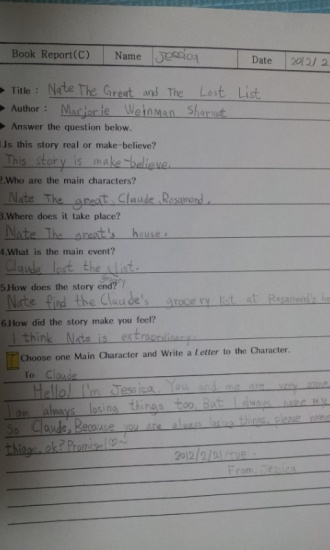 Book Report(C) Name Jessica Date 2012/2
▶ Title : Nate The Great and The Lost List
▶ Author : Marjorie Weinman Sharmat
▶ Answer the question below.
1.Is this story real or make-believe?
This story is make-believe.
2.Who are the main characters?
Nate The great, Claude, Rosamond.
3.Where does it take place?
Nate The great's house.
4.What is the main event?
Claude lost the list.
5.How does the story end?
Nate find the Claude's grocery list at Rosamond's
6.How did the story make you feel?
I think Nate is extraordinary.
Choose one Main Character and Write a Letter to the Character.
To Claude
Hello! I'm Jessica. You and me are very
I am always losing things too. But I always my
So Claude, Because you are always losing things, please
things, ok? Promise!♡~
2012/2/21/TUE.
From. Jessica